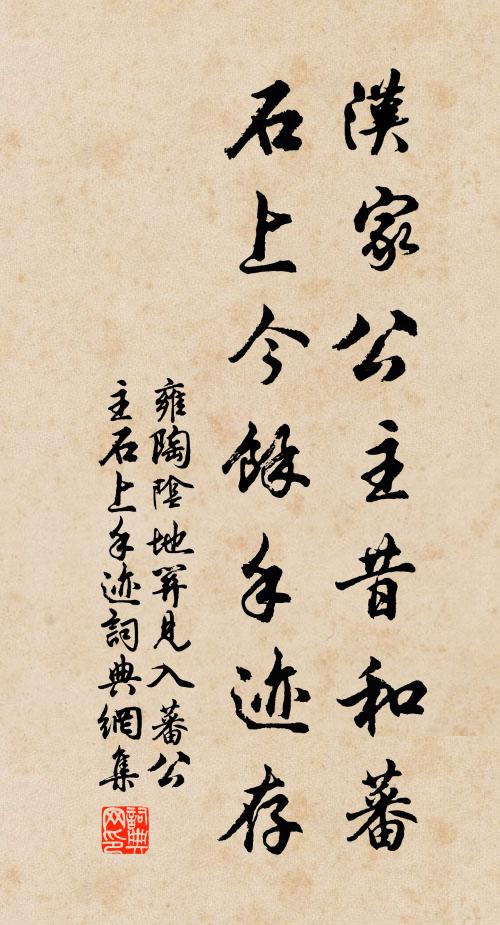 漢家公主昔和蕃
石上今餘手迹存
雍陶陰地關見入蕃公
主石上手迹詞典網集
詞典
网印